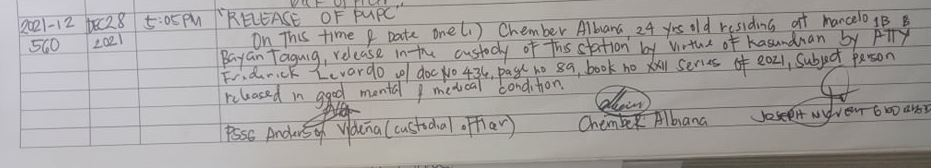 2021-12 DEC 28 5:05PM "RELEASE OF PUPC"
560 2021 On This time & Date one (1) Chember Albiana 24 yrs old residing at Marcelo 1B B
Bayan Taguig, release in the custody of this station by virtue of Kasunduan by ATTY
Frederick Levardo w/ doc No 436, page no 89, book no XXII Series of 2021, Subject person
released in good mental & medical condition.
PSSG Anderson Videña (custodial officer) Chember Albiana JOSEPH